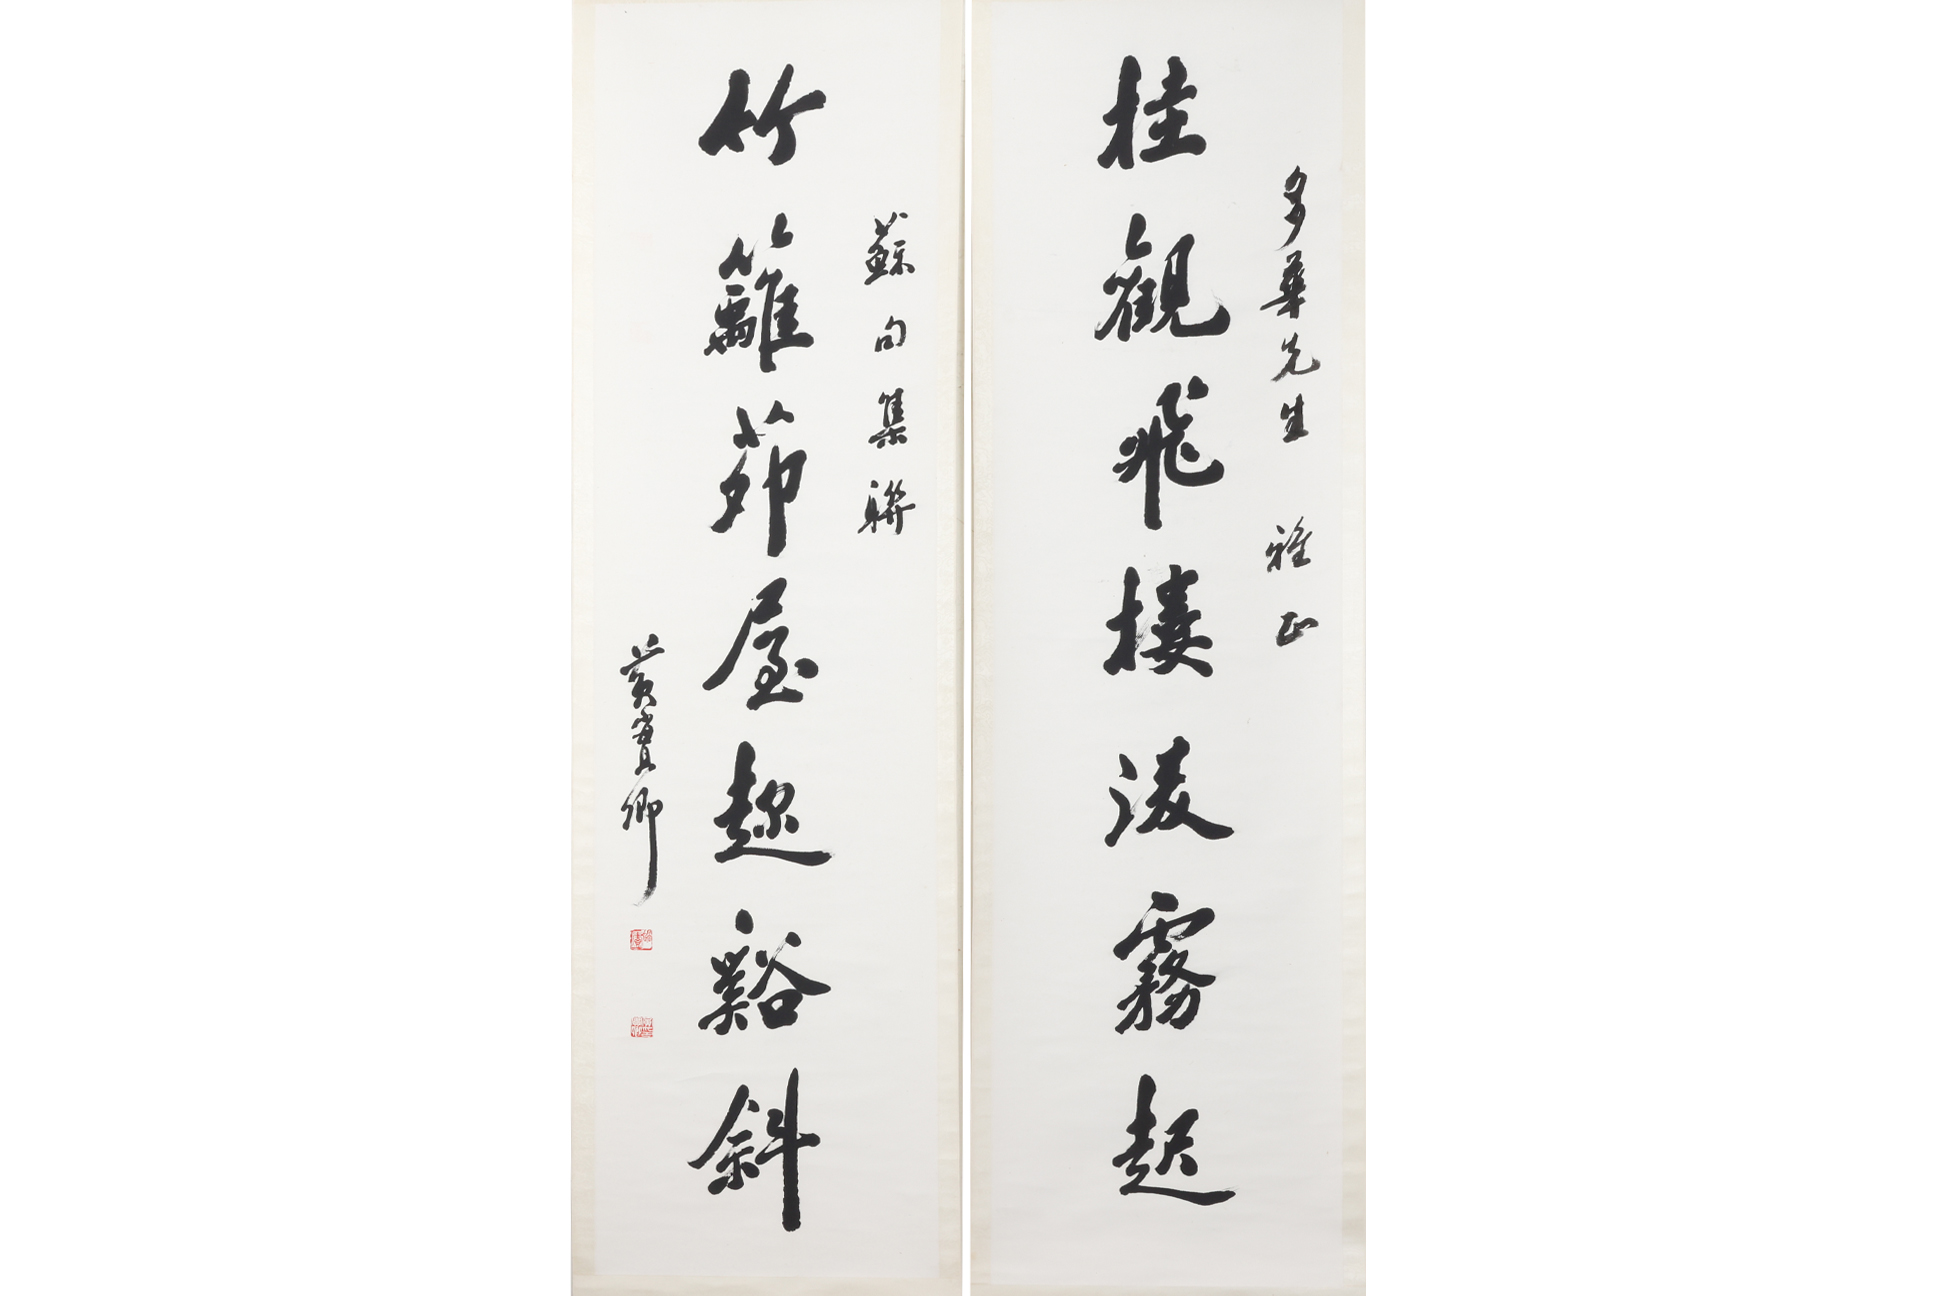 多華先生 雅正
桂觀飛樓凌霧起
蘇句集聯
竹籬茆屋趂谿斜
黃 卿